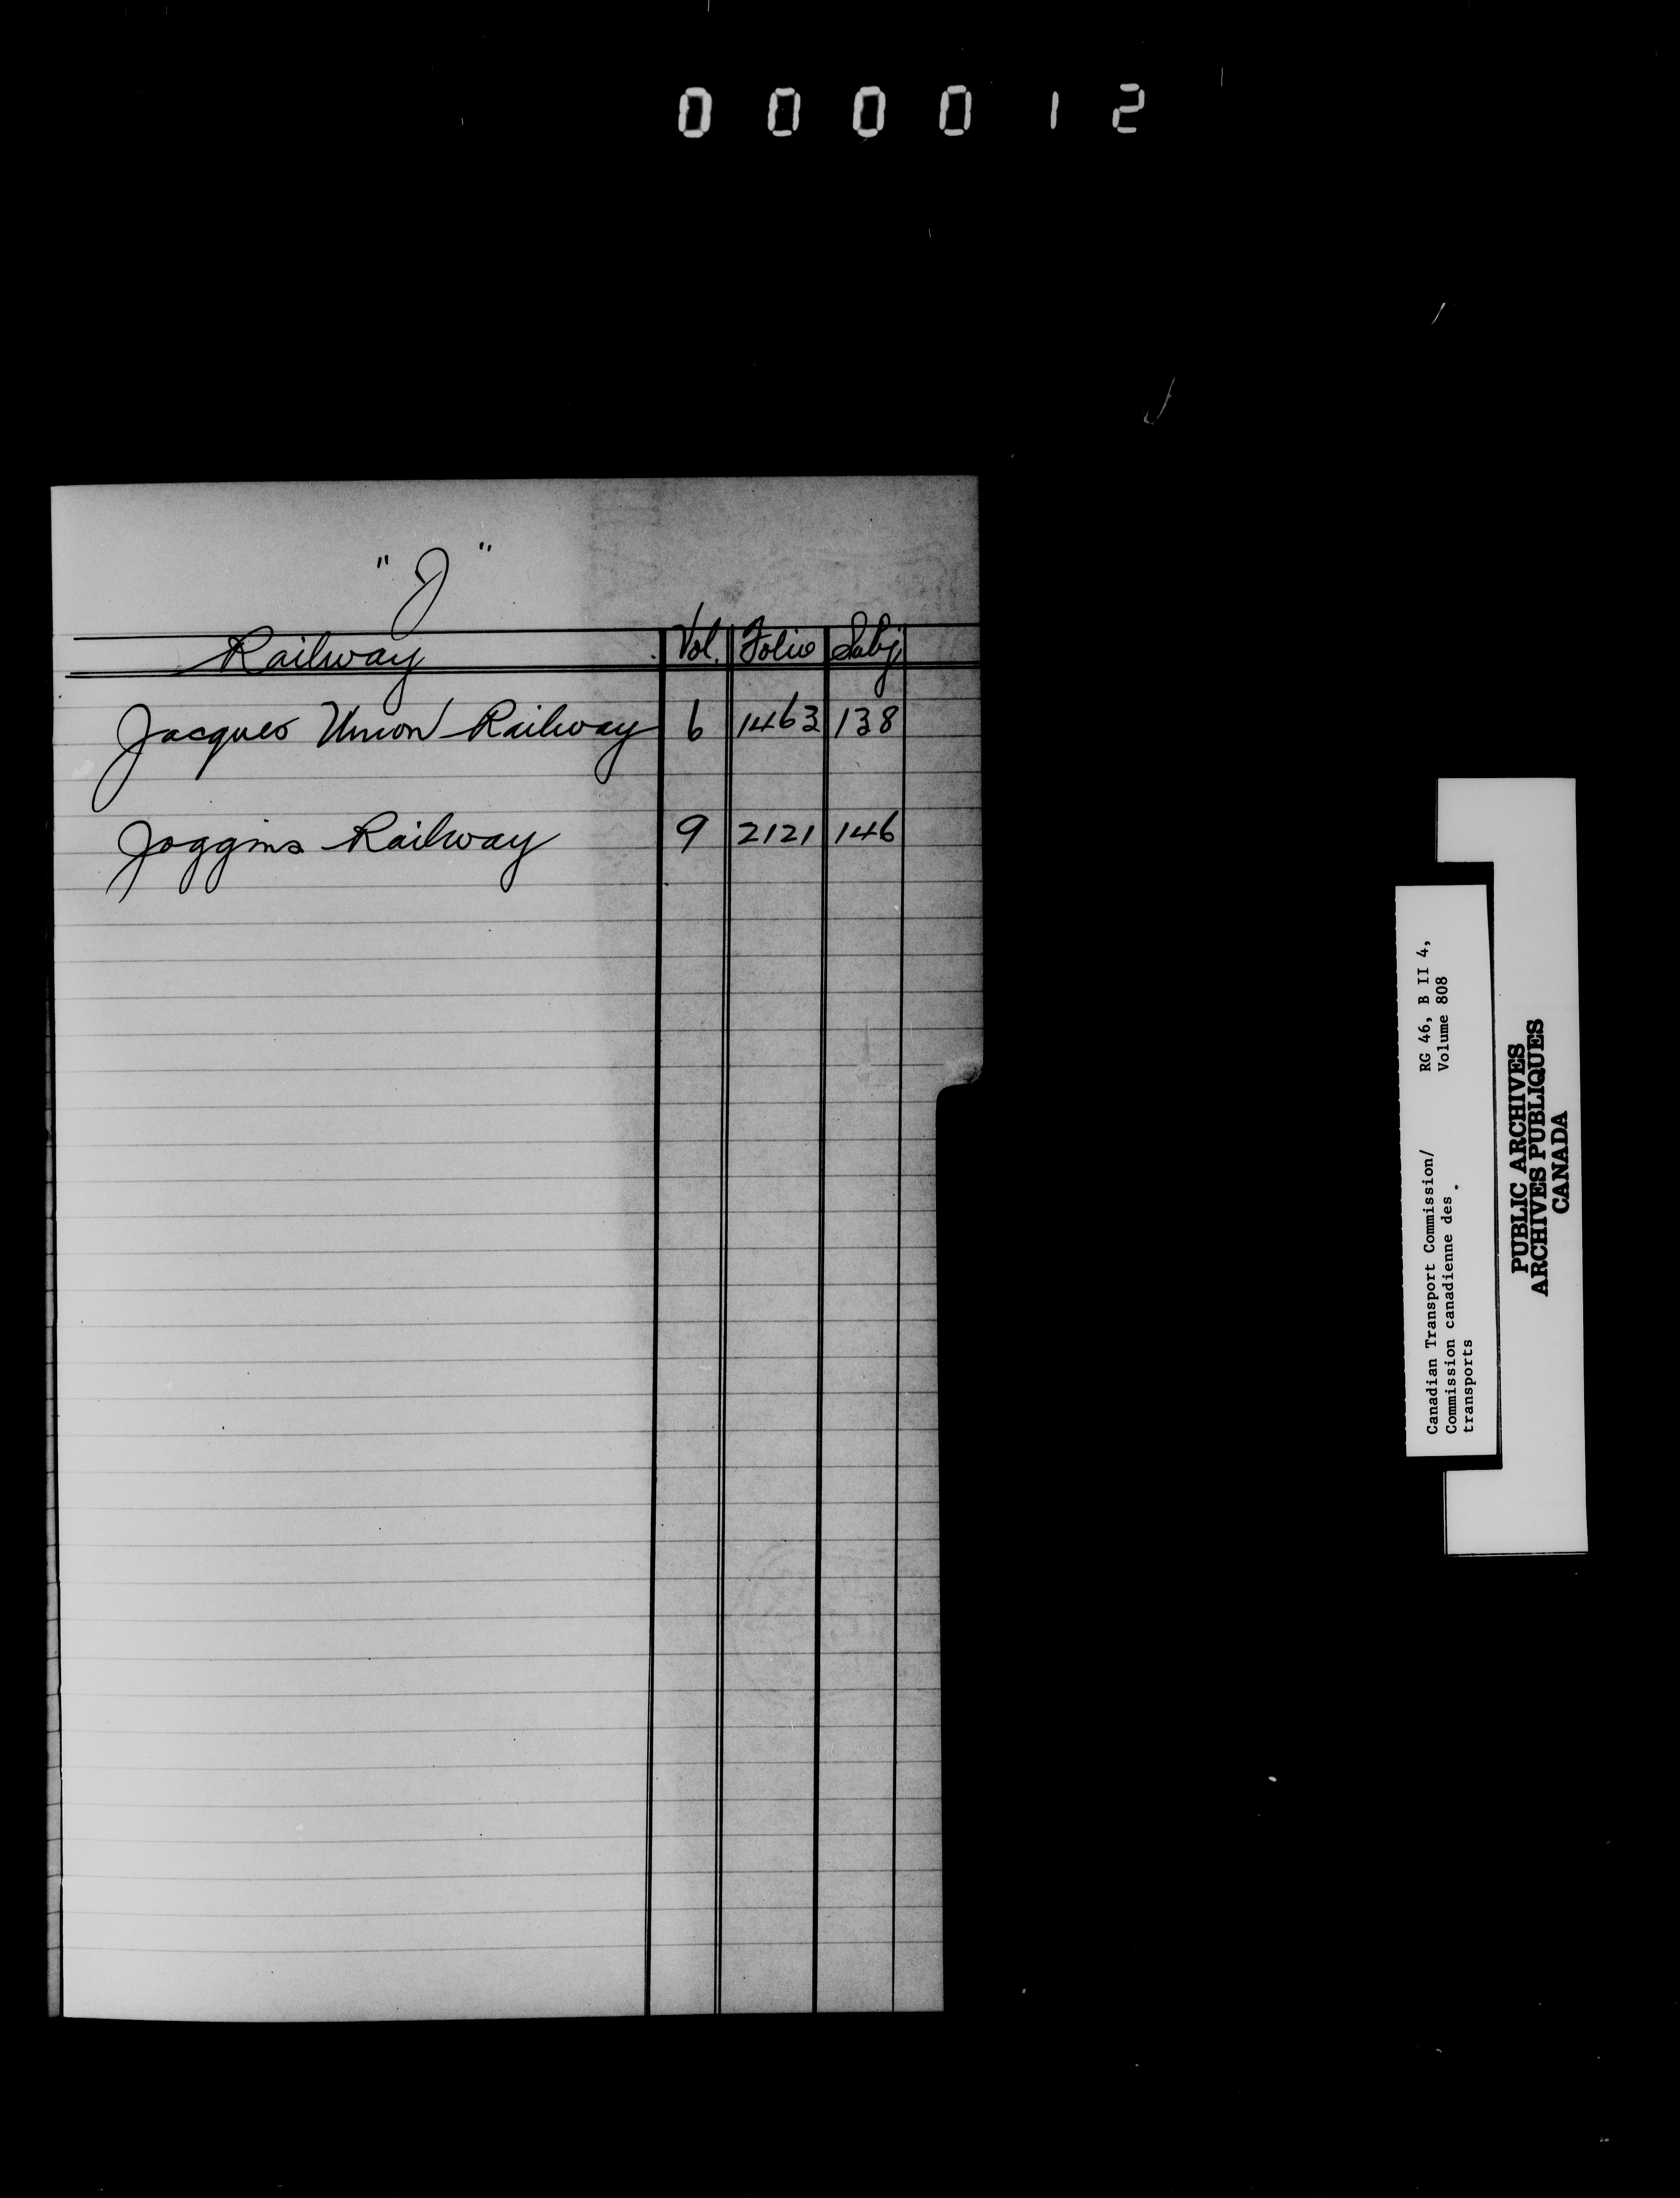 000012
"J"
Railway Vol. Folio Subj
Jacques Union Railway 6 1463 138
Joggins Railway 9 2121 146
Canadian Transport Commission/ RG 46, B II 4,
Commission canadienne des Volume 808
transports
PUBLIC ARCHIVES
ARCHIVES PUBLIQUES
CANADA